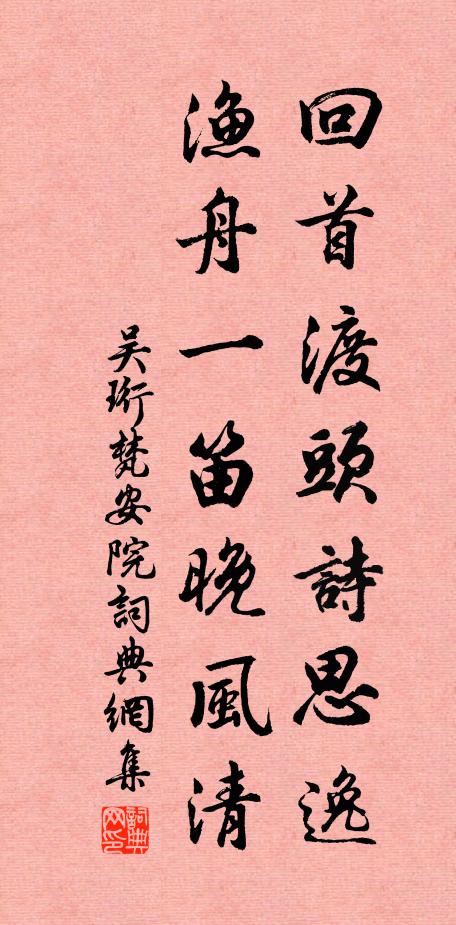 回首渡頭詩思逸
漁舟一笛晚風清
吴珩梵安院詞典網集
詞典网印